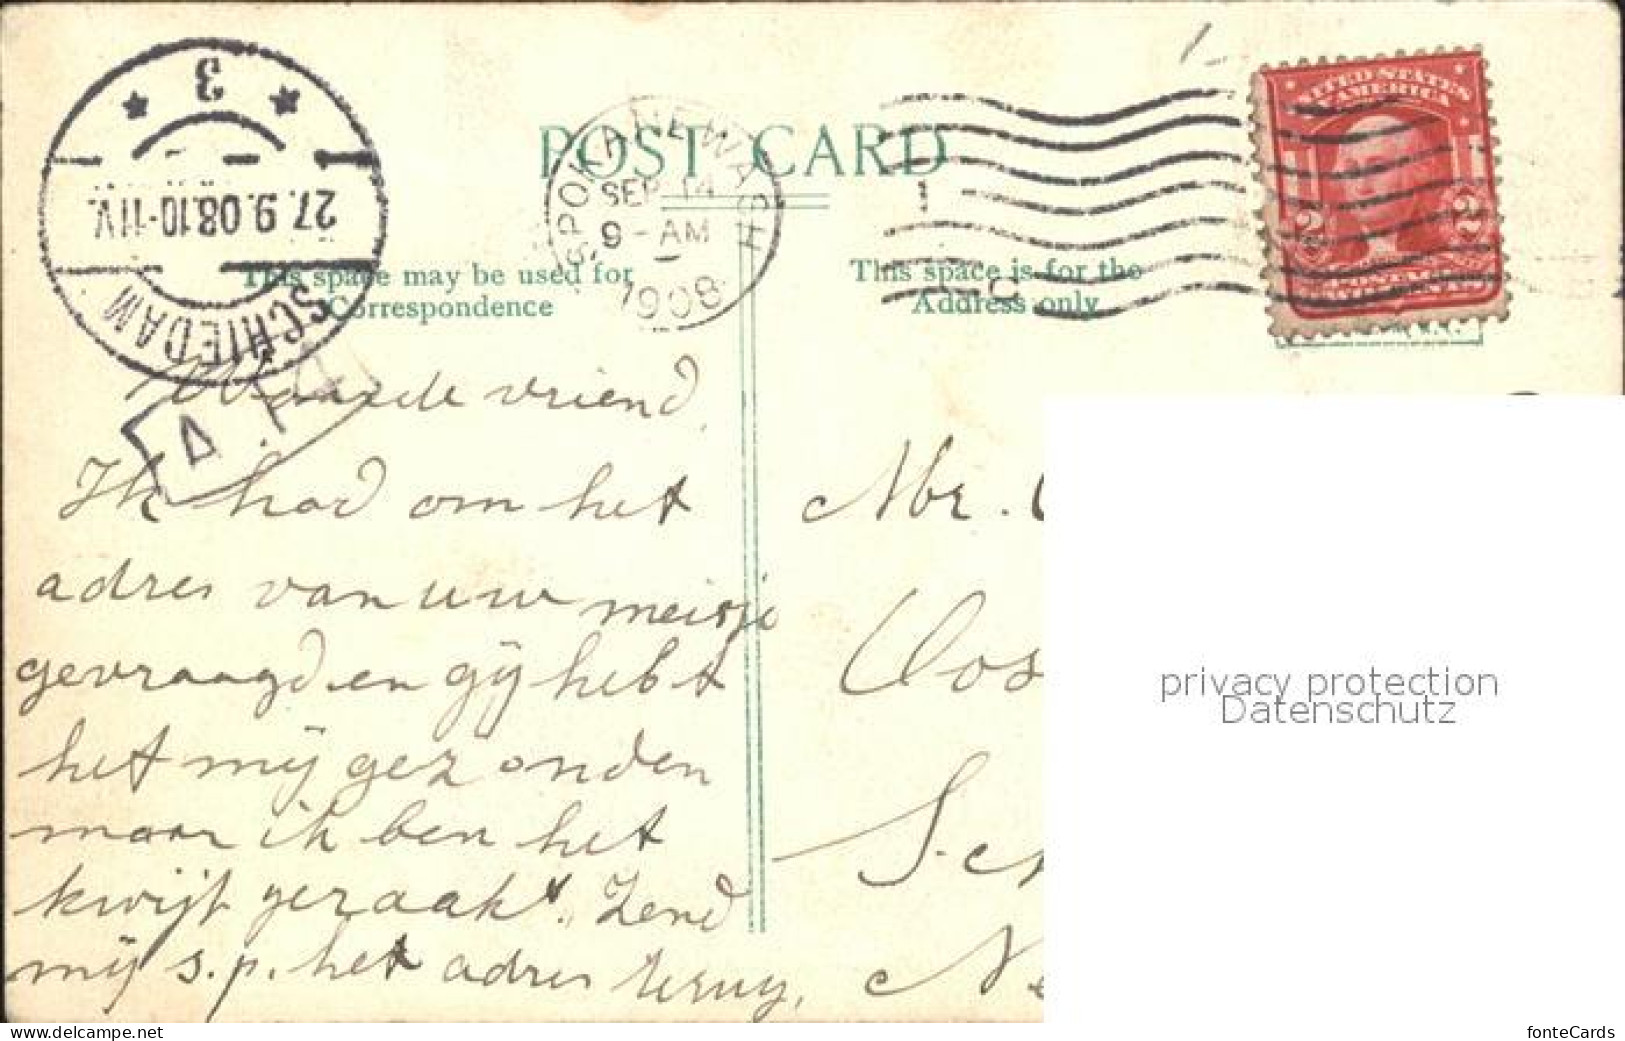 3
27.9.08.10-11V.
SCHIEDAM
SPOKANE WASH
SEP 14
9-AM
1908
1
POST CARD
UNITED STATES
OF AMERICA
2 2
This space may be used for
Correspondence
This space is for the
Address only
Waarde vriend,
Ik had om het
adres van uw meisje
gevraagd en gij hebt
het mij gezonden
maar ik ben het
kwijt geraakt. Zend
mij s.p. het adres terug,
Mr.
Oos
Sch
Ne
privacy protection
Datenschutz
fonteCards
www.delcampe.net